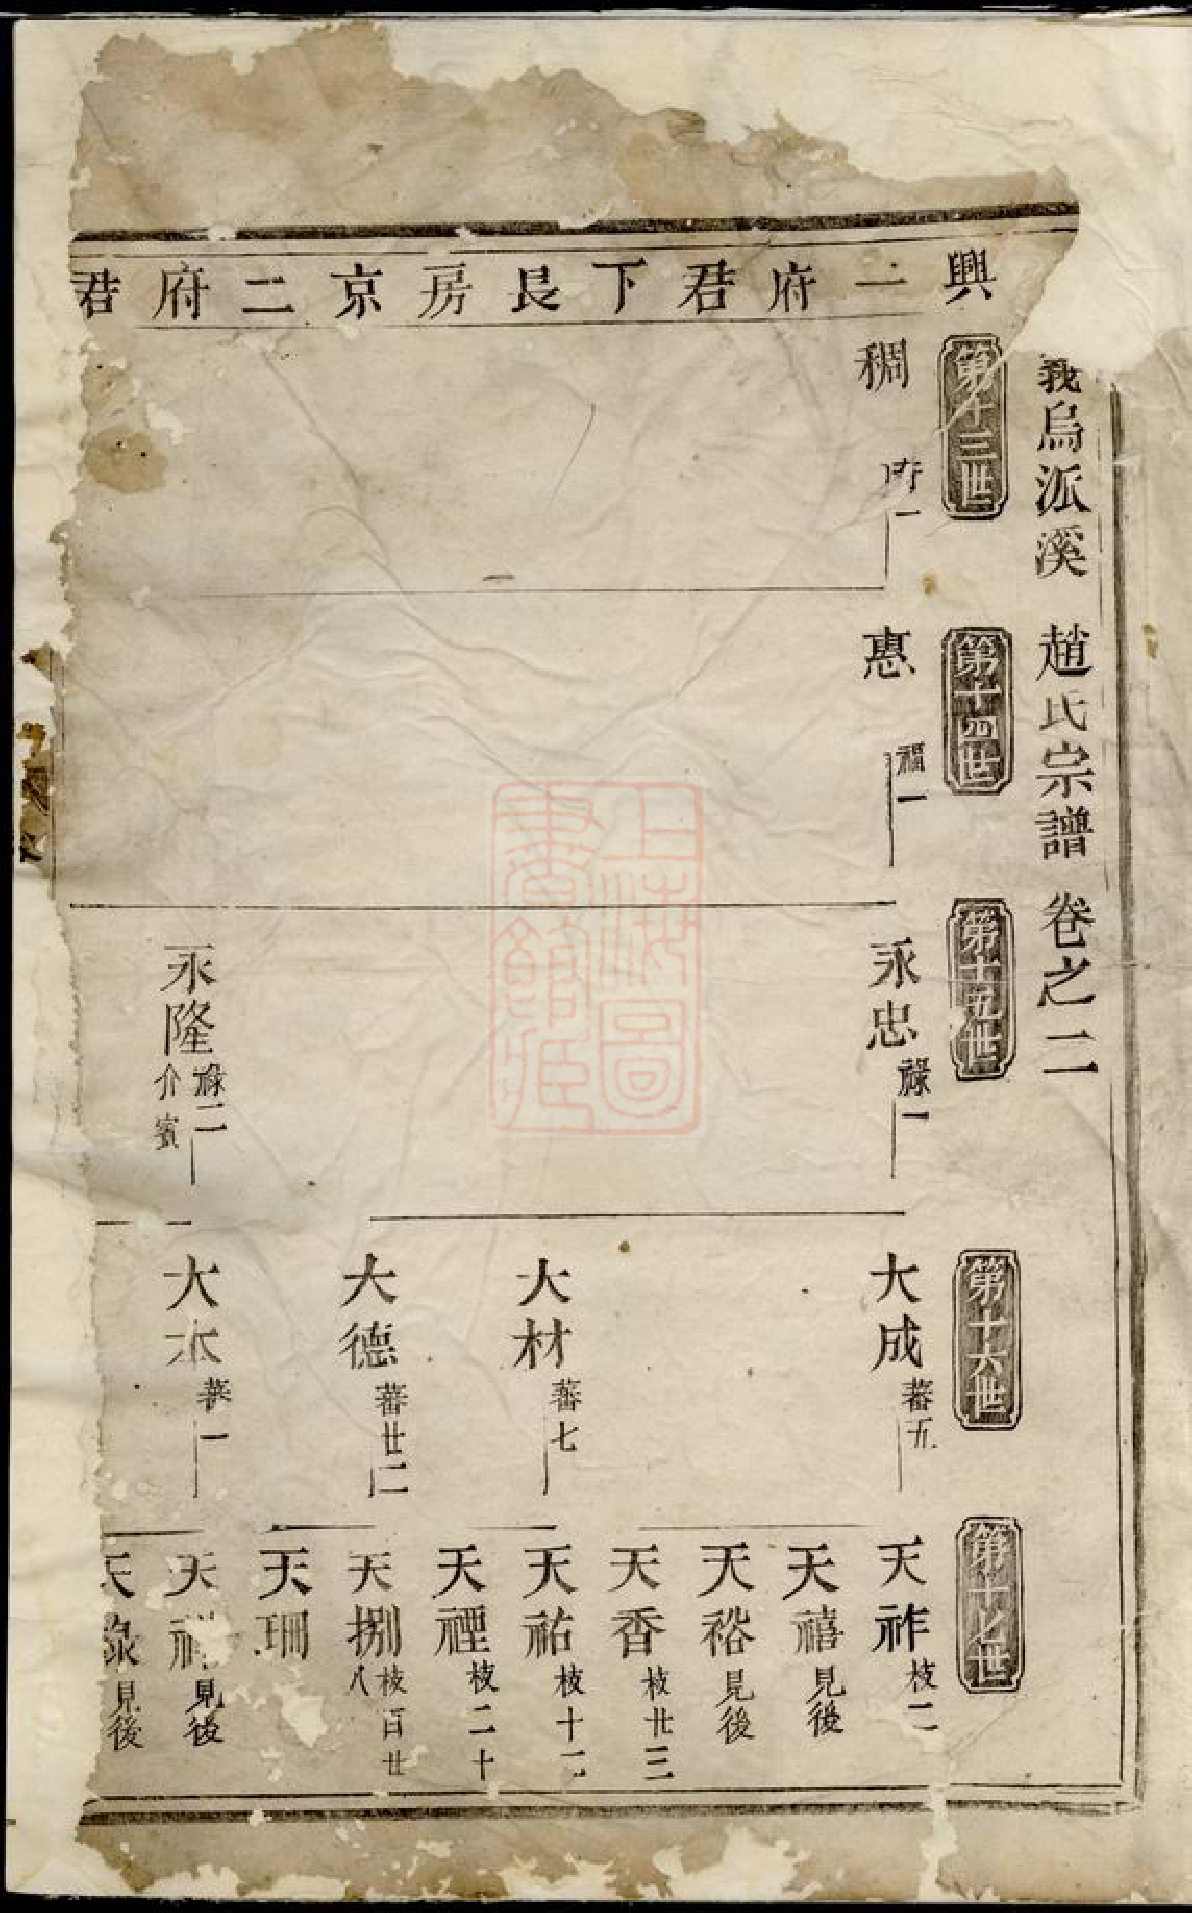 義烏派溪 趙氏宗譜 卷之二
興二府君下艮房京二府君
第十三世
稠
府一
第十四世
惠
福一
第十五世
永忠 祿一
永隆 祿二
介賓
第十六世
大成 蕃五
大材 蕃七
大德 蕃廿二
大本
第十七世
天祚 枝二
天禧 見後
天裕 見後
天香 枝廿三
天祐 枝十二
天禋 枝二十
天捌 枝百廿八
天珊
天祥 見後
天祿 見後
上海圖書館藏